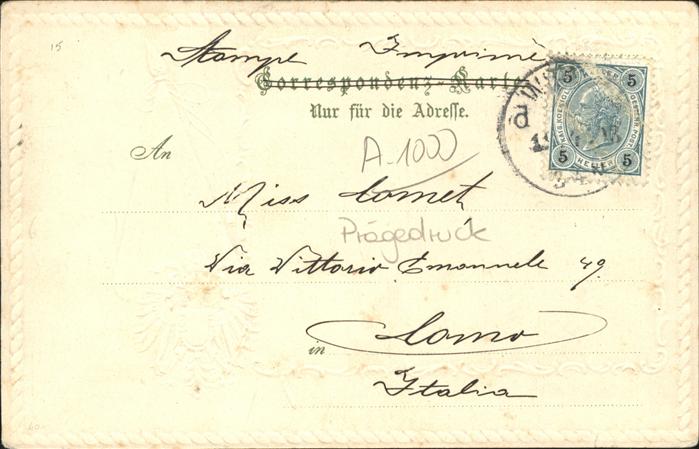 15
Stampe Imprimé
Correspondenz-Karte
Nur für die Adresse.
5 5
5 5
HELLER
An
A-1000
Miss Comet
Prägedruck
Via Vittorio Emanuele 49.
in Como
Italia